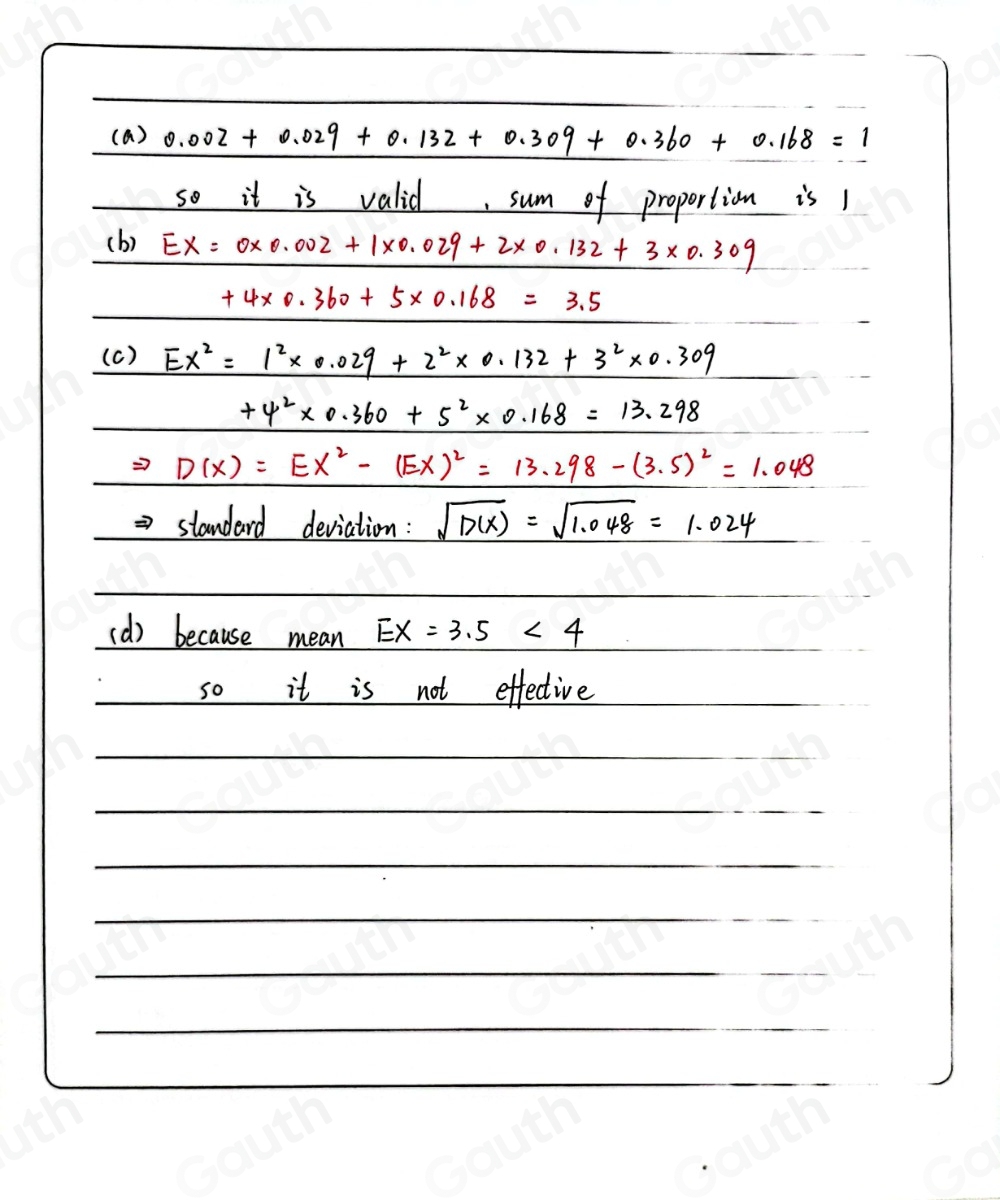 (a) 0.002 + 0.029 + 0.132 + 0.309 + 0.360 + 0.168 = 1
so it is valid , sum of proportion is 1
(b) EX = 0×0.002 + 1×0.029 + 2×0.132 + 3×0.309
+ 4×0.360 + 5×0.168 = 3.5
(c) EX² = 1²×0.029 + 2²×0.132 + 3²×0.309
+4²×0.360 + 5²×0.168 = 13.298
⇒ D(X) = EX² - (EX)² = 13.298 - (3.5)² = 1.048
⇒ standard deviation: √D(X) = √1.048 = 1.024
(d) because mean EX = 3.5 < 4
so it is not effective
Gauth